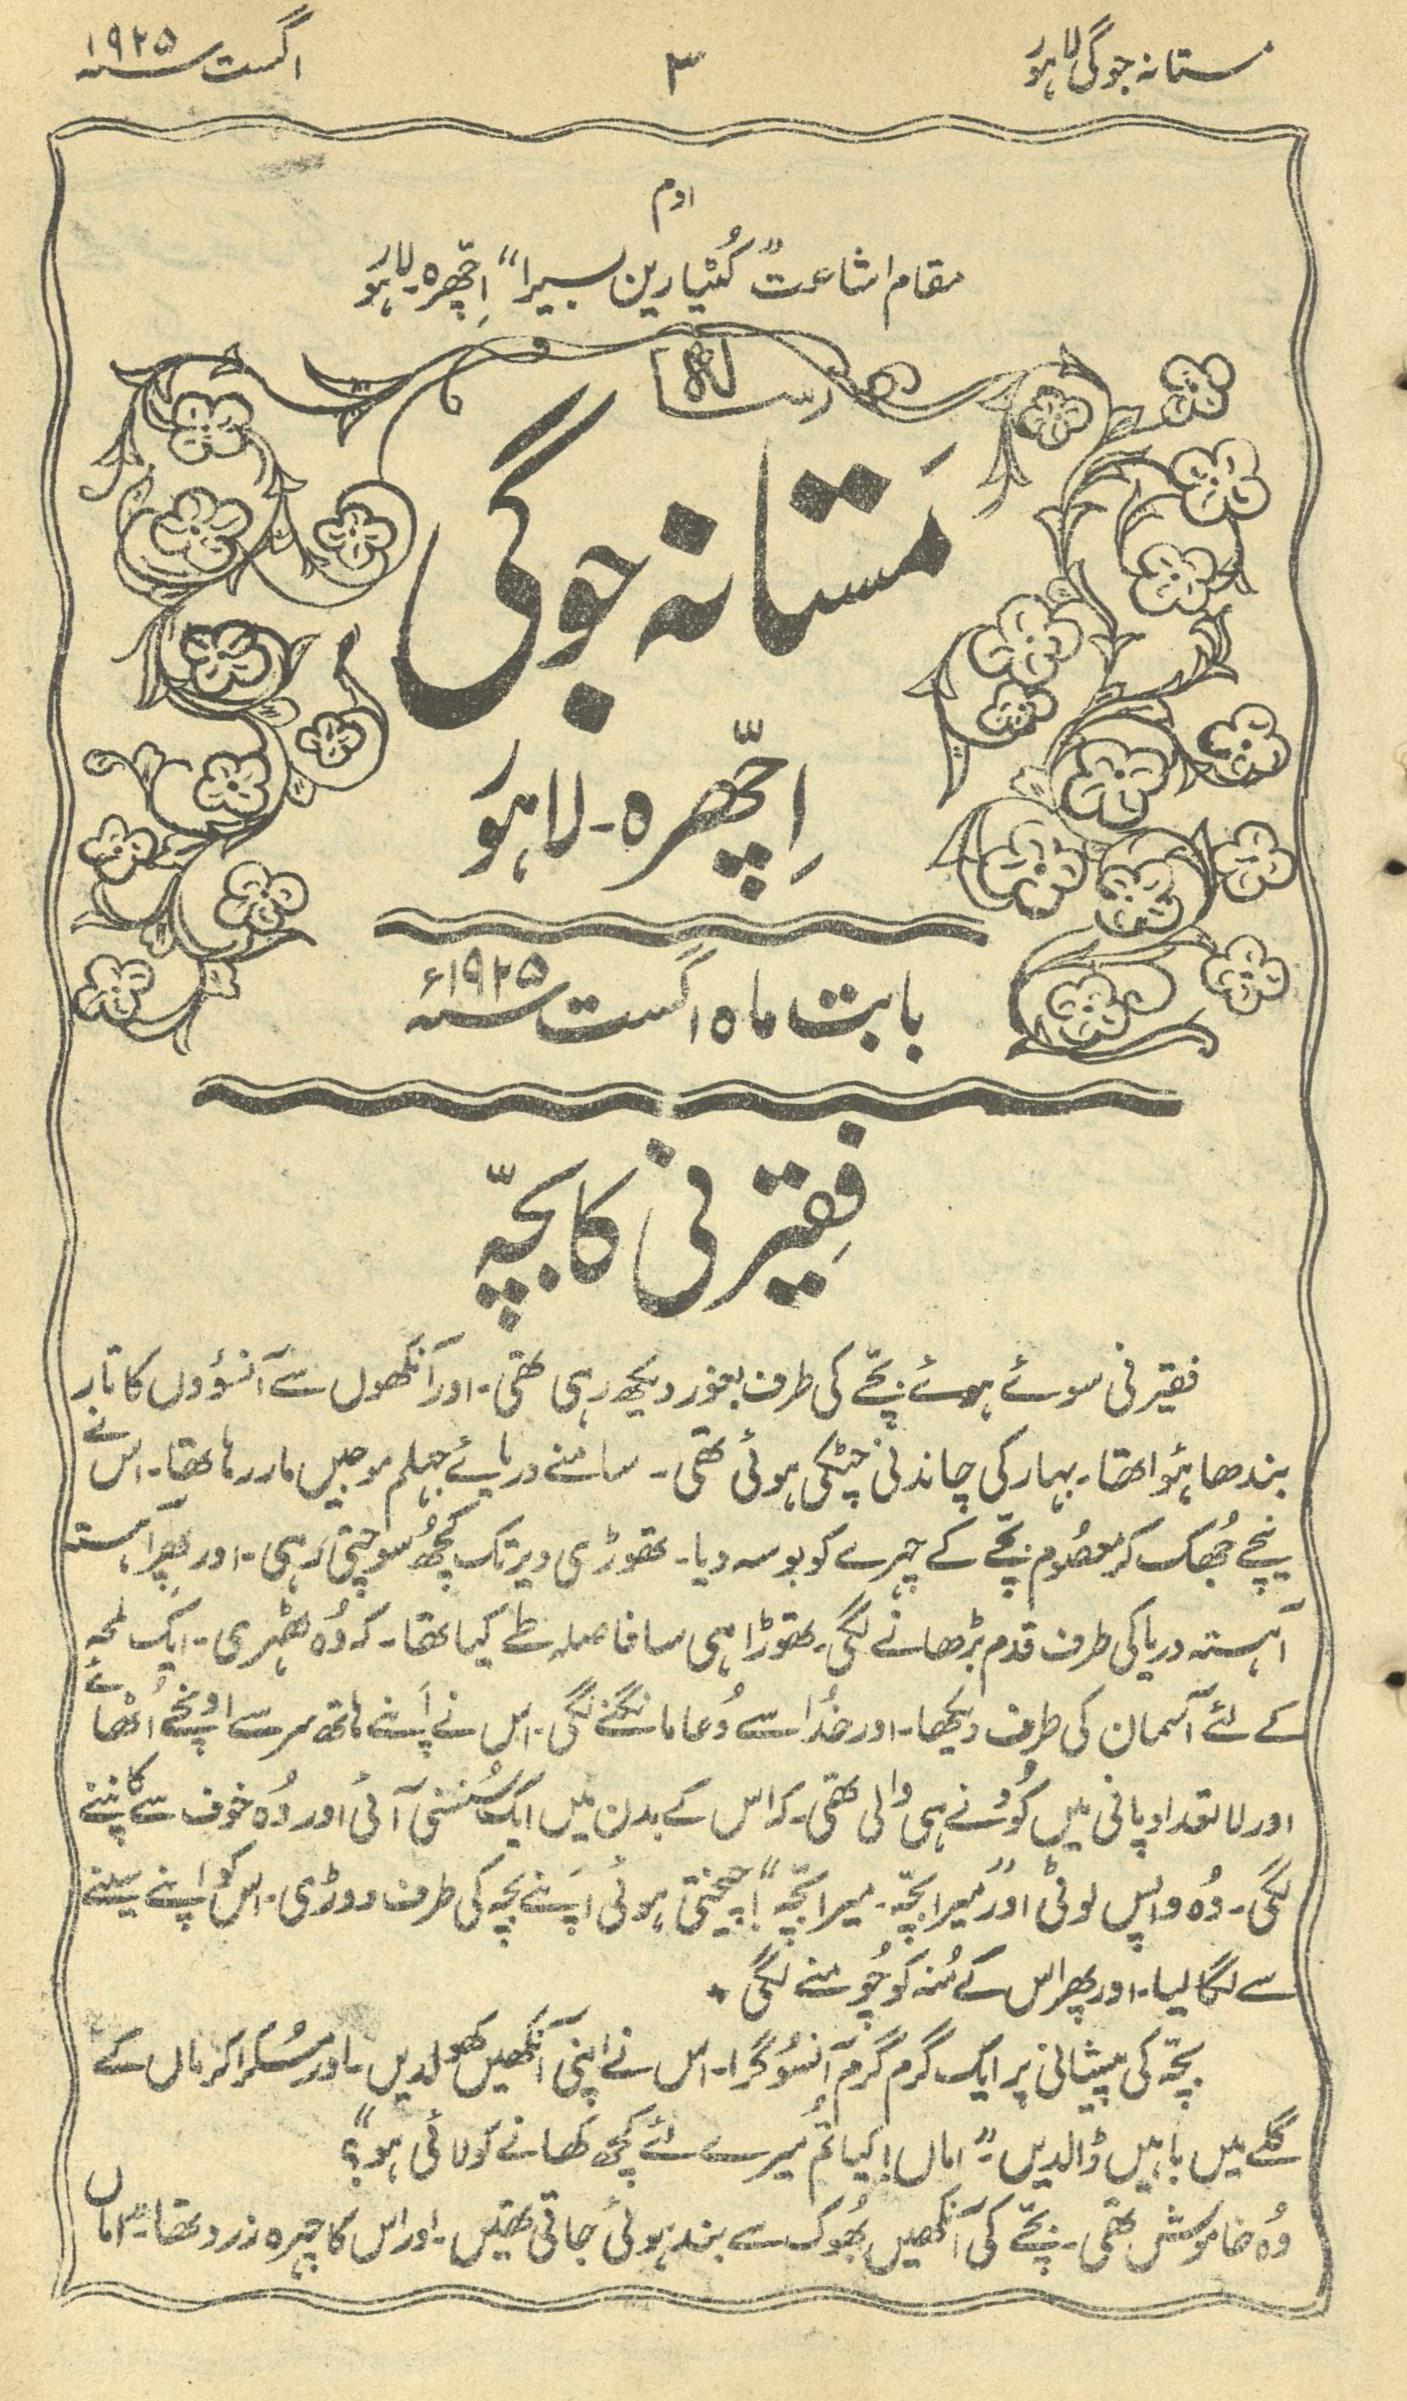 مستانہ جوگی لاہور
۳
اگست سنہ ۱۹۲۵
اوم
مقام اشاعت "کُٹیا رین بسیرا" اِچھّرہ۔ لاہور
رسالہ
مَستانہ جوگی
اِچھّرہ۔ لاہور
بابت ماہ اگست سنہ ۱۹۲۵ء
فقیرنی کا بچّہ
فقیرنی سوئے ہوئے بچّے کی طرف بغور دیکھ رہی تھی۔ اور آنکھوں سے آنسوؤں کا تار
بندھا ہؤا تھا۔ بہار کی چاندنی چٹکی ہوئی تھی۔ سامنے دریائے جہلم موجیں مار رہا تھا۔ اس نے
نیچے جُھک کر معصُوم بچّے کے چہرے کو بوسہ دیا۔ تھوڑی دیر تک کچھُ سوچتی رہی۔ اور پھر آہستہ
آہستہ دریا کی طرف قدم بڑھانے لگی۔ تھوڑا ہی سا فاصلہ طے کیا تھا۔ کہ وُہ ٹھہری۔ ایک لمحہ
کے لئے آسمان کی طرف دیکھا۔ اور خدُا سے دُعا مانگنے لگی۔ اس نے اَپنے ہاتھ سر سے اونچے اُٹھائے
اور لا تعداد پانی میں کُودنے ہی والی تھی۔ کہ اس کے بدن میں ایک سنسنی آئی اور وُہ خوف سے کانپنے
لگی۔ وُہ واپس لوٹی اور "میرا بچّہ۔ میرا بچّہ"! چیختی ہوئی اَپنے بچہ کی طرف دوڑی۔ اس کو اپنے سینے
سے لگا لیا۔ اور پھر اس کے مُنہ کو چُومنے لگی ٭
بچّہ کی پیشانی پر ایک گرم گرم آنسُو گرا۔ اس نے اپنی آنکھیں کھولدیں۔ اور مسُکرا کر ماں کے
گلے میں باہیں ڈالدیں۔ "اماں! کیا تُم میرے لئے کچھ کھانے کو لائی ہو"؟
وُہ خاموش تھی۔ بچّے کی آنکھیں بھُوک سے بند ہوئی جاتی تھیں۔ اور اس کا چہرہ زرد تھا۔ "اماں